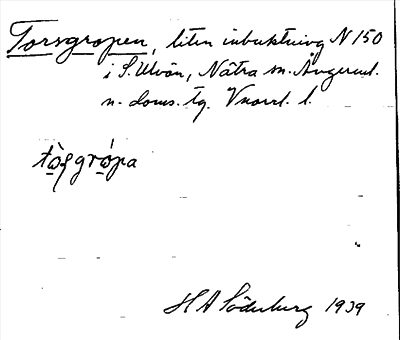 Torsgropen, liten inbuktning N 150
i S. Ulvön, Nätra sn. Ångerml.
n. doms. tg. Vnorrl. l.
tò̱ʂgró̱pa
H A Söderberg 1939